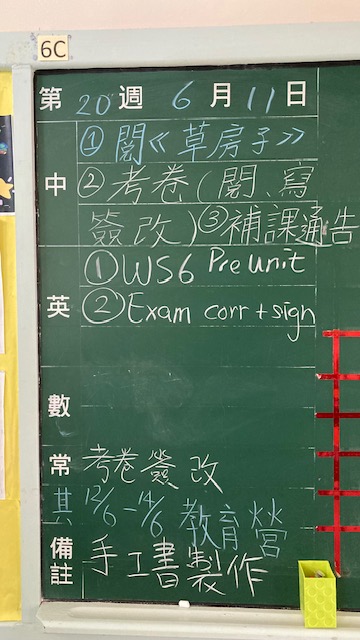 6C
第 20 週 6 月 11 日
中 ①閱《草房子》
②考卷(閱、寫
簽改)③補課通告
英 ①WS6 Pre unit
②Exam corr + sign
數
常 考卷簽改
其 12/6-14/6 教育營
備註 手工書製作